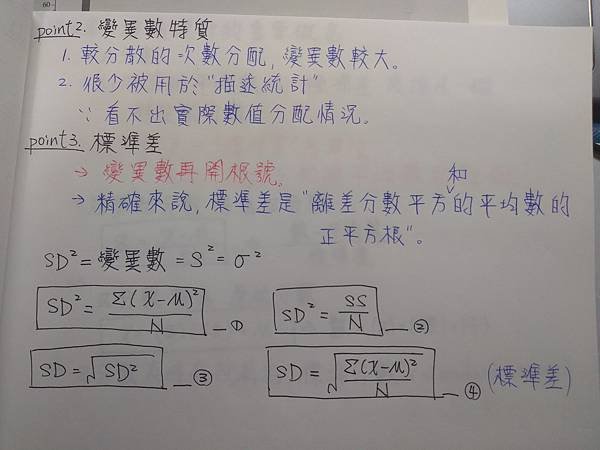 point2. 變異數特質
1. 較分散的次數分配, 變異數較大。
2. 很少被用於"描述統計"
∵ 看不出實際數值分配情況。
point3. 標準差
→ 變異數再開根號。
和
→ 精確來說, 標準差是"離差分數平方的平均數的
正平方根"。
SD² = 變異數 = S² = σ²
SD² = Σ(X-μ)²/N —①
SD² = SS/N —②
SD = √SD² —③
SD = √(Σ(X-μ)²/N) —④ (標準差)